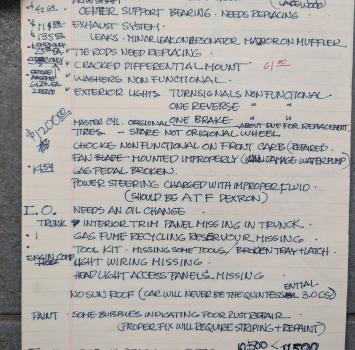 DRIVE SHAFT (LAKEWOOD
CENTER SUPPORT BEARING. NEEDS REPLACING
EXHAUST SYSTEM.
$135 EA LEAKS. MINOR LEAK ON RESONATOR MAJOR ON MUFFLER
TIE RODS NEED REPLACING.
CRACKED DIFFERENTIAL MOUNT 61.00
WASHERS NON FUNCTIONAL.
EXTERIOR LIGHTS TURN SIGNALS NON FUNCTIONAL
ONE REVERSE " "
ONE BRAKE " "
$1200.00 MASTER CYL. ORIGIONAL ABOUT DUE FOR REPLACEMENT
TIRES - SPARE NOT ORIGIONAL WHEEL
CHOCKE NON FUNCTIONAL ON FRONT CARB (REPAIRED.
FAN BLADE - MOUNTED IMPROPERLY (CAN DAMAGE WATER PUMP)
GAS PEDAL BROKEN.
POWER STEERING CHARGED WITH IMPROPER FLUID.
(SHOULD BE ATF DEXRON)
I.O. NEEDS AN OIL CHANGE.
TRUNK INTERIOR TRIM PANEL MISSING IN TRUNCK.
GAS FUME RECYCLING RESERVOUR MISSING.
TOOL KIT. MISSING SOME TOOLS/ BROKEN TRAY + LATCH
ENGIN COMP LIGHT WIRING MISSING.
HEAD LIGHT ACCESS PANELS. MISSING
NO SUN ROOF (CAR WILL NEVER BE THE QUINTESSENTIAL 3.0 CS)
PAINT. SOME BUBBLES INDICATING POOR RUST REPAIR.
(PROPER FIX WILL REQUIRE STRIPING + REPAINT)
10,500 < 11500